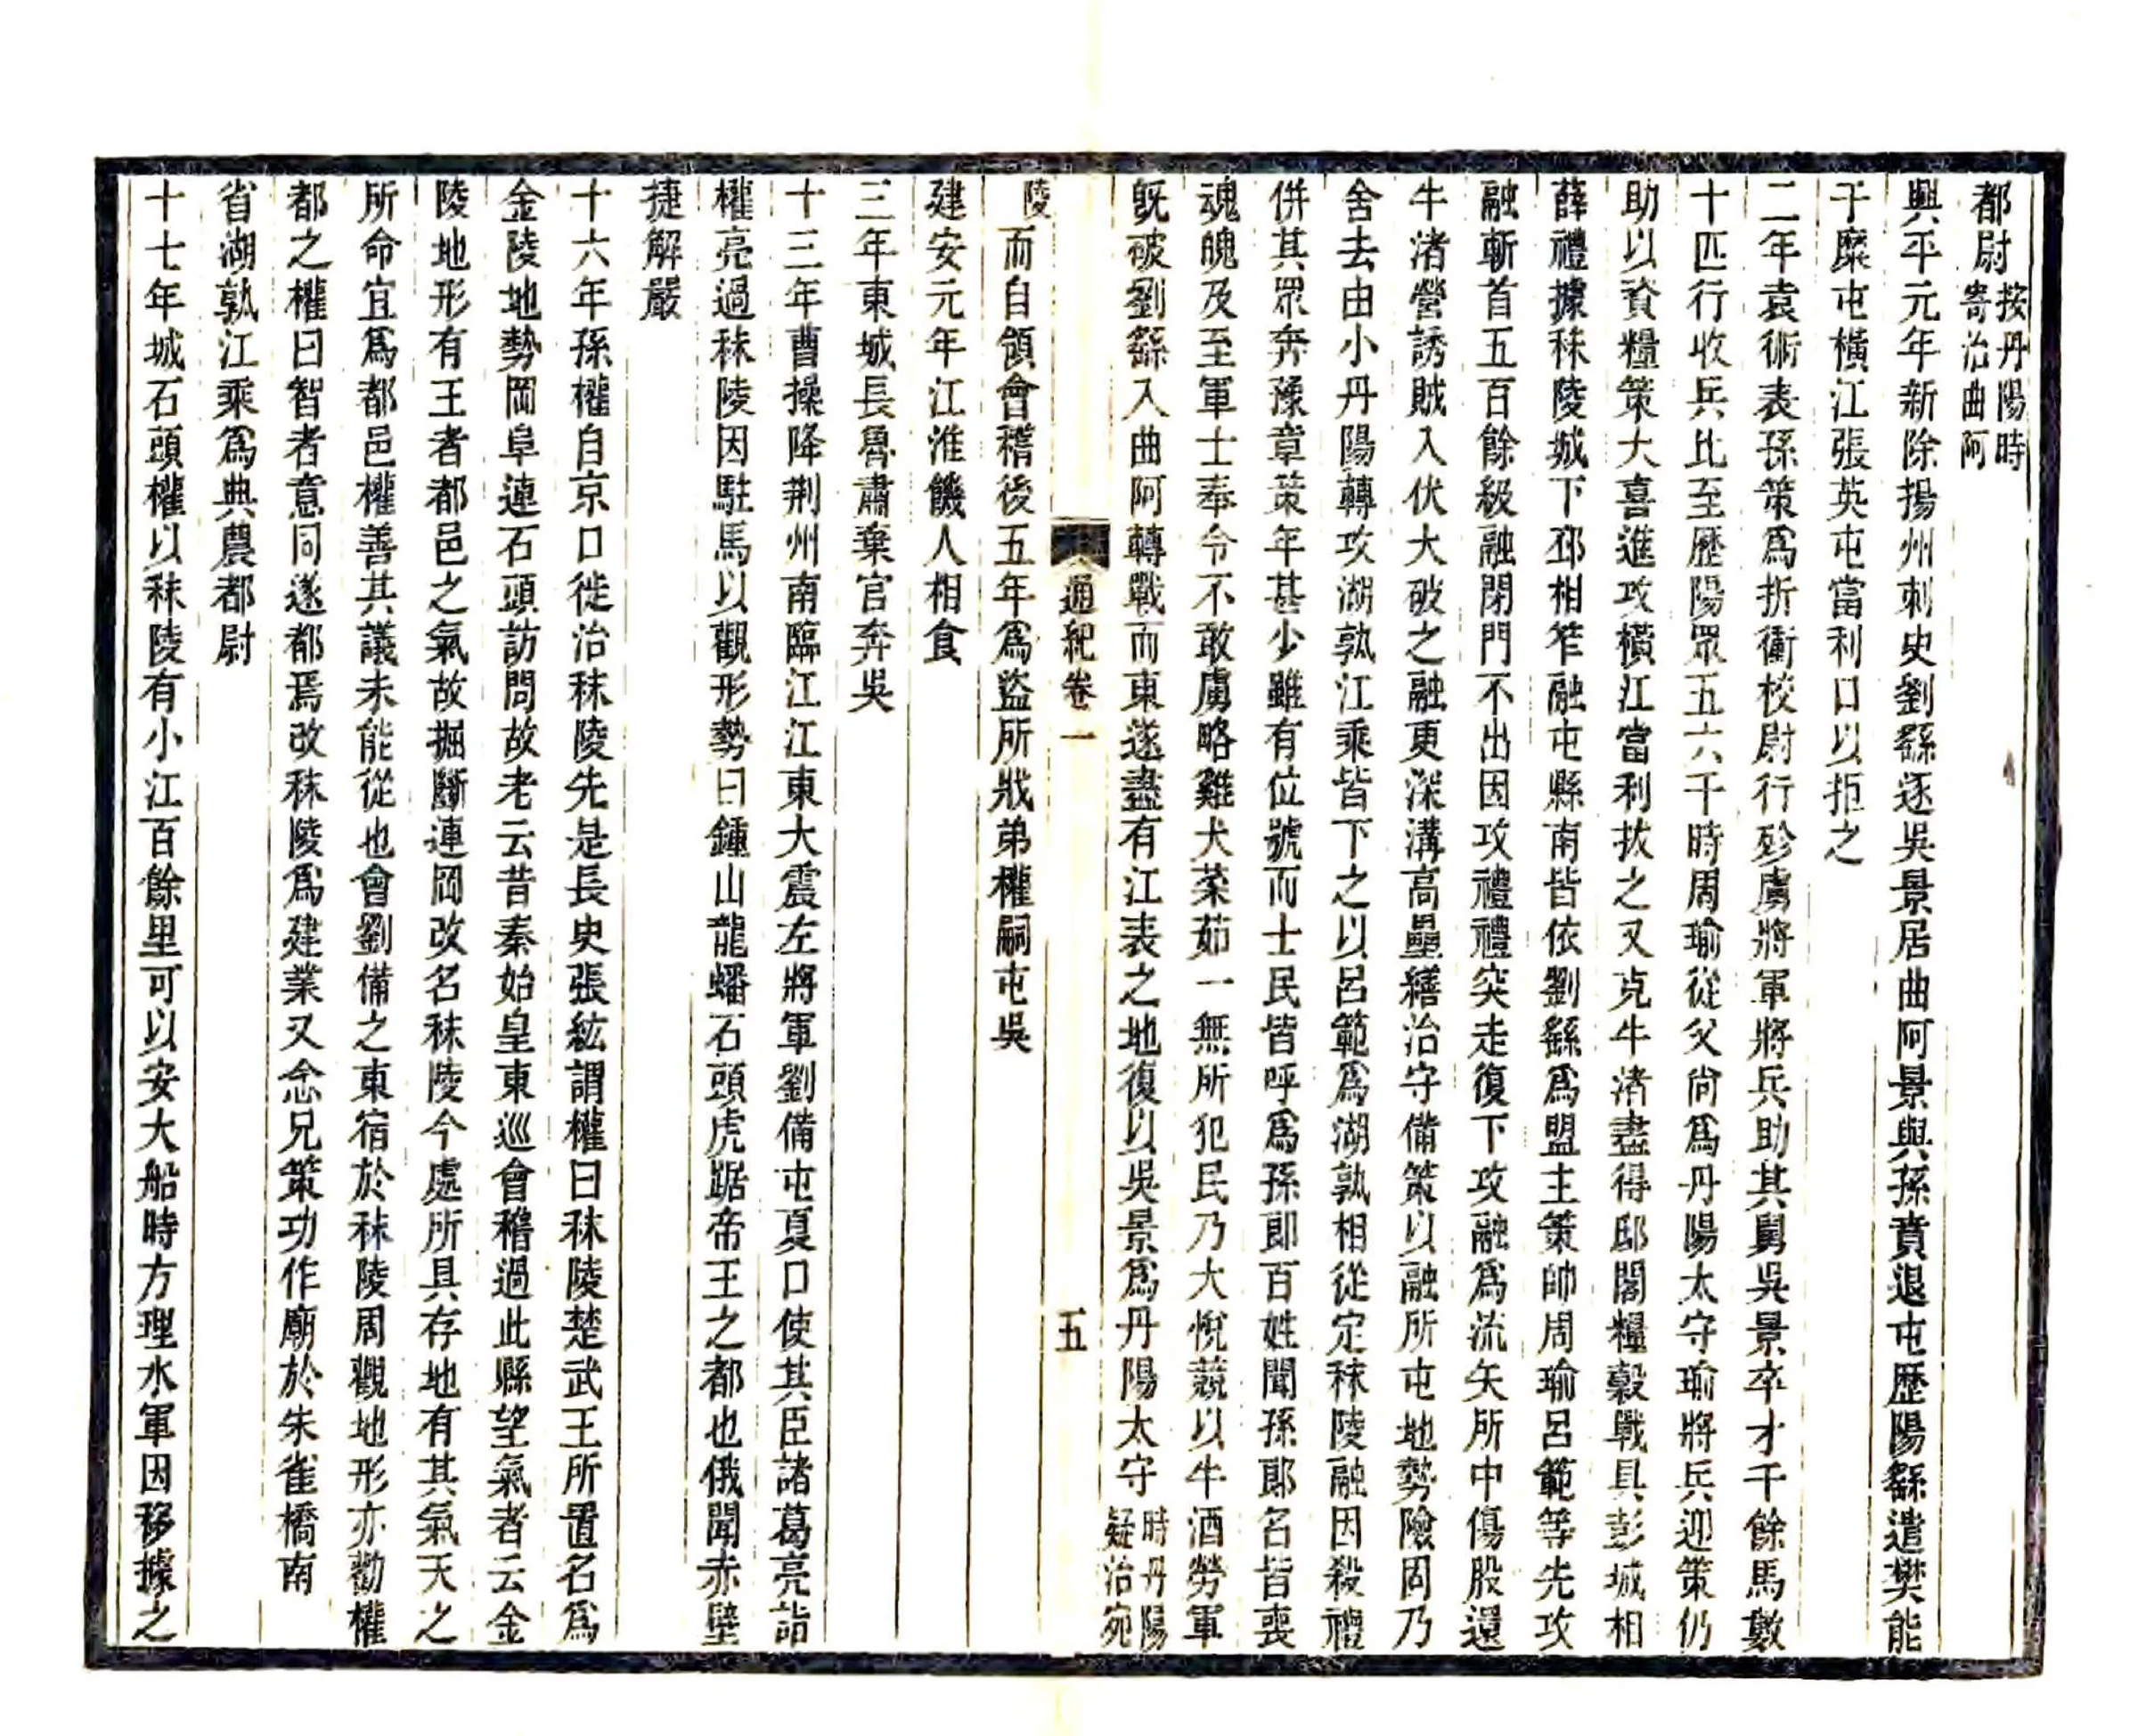 都尉按丹陽時寄治曲阿
興平元年新除揚州刺史劉繇逐吳景居曲阿景與孫賁退屯歷陽繇遣樊能
于糜屯橫江張英屯當利口以拒之
二年袁術表孫策為折衝校尉行殄虜將軍將兵助其舅吳景卒才千餘馬數
十匹行收兵比至歷陽眾五六千時周瑜從父尚為丹陽太守瑜將兵迎策仍
助以資糧策大喜進攻橫江當利拔之又克牛渚盡得邸閣糧穀戰具彭城相
薛禮據秣陵城下邳相笮融屯縣南皆依劉繇為盟主策帥周瑜呂範等先攻
融斬首五百餘級融閉門不出因攻禮禮突走復下攻融為流矢所中傷股還
牛渚營誘賊入伏大破之融更深溝高壘繕治守備策以融所屯地勢險固乃
舍去由小丹陽轉攻湖孰江乘皆下之以呂範為湖孰相從定秣陵融因殺禮
併其眾奔豫章策年甚少雖有位號而士民皆呼為孫郎百姓聞孫郎名皆喪
魂魄及至軍士奉令不敢虜略雞犬菜茹一無所犯民乃大悅競以牛酒勞軍
既破劉繇入曲阿轉戰而東遂盡有江表之地復以吳景為丹陽太守時丹陽疑治宛
通紀卷一 五
陵而自領會稽後五年為盜所戕弟權嗣屯吳
建安元年江淮饑人相食
三年東城長魯肅棄官奔吳
十三年曹操降荆州南臨江江東大震左將軍劉備屯夏口使其臣諸葛亮詣
權亮過秣陵因駐馬以觀形勢曰鍾山龍蟠石頭虎踞帝王之都也俄聞赤壁
捷解嚴
十六年孫權自京口徙治秣陵先是長史張紘謂權曰秣陵楚武王所置名為
金陵地勢岡阜連石頭訪問故老云昔秦始皇東巡會稽過此縣望氣者云金
陵地形有王者都邑之氣故掘斷連岡改名秣陵今處所具存地有其氣天之
所命宜為都邑權善其議未能從也會劉備之東宿於秣陵周觀地形亦勸權
都之權曰智者意同遂都焉改秣陵為建業又念兄策功作廟於朱雀橋南
省湖孰江乘為典農都尉
十七年城石頭權以秣陵有小江百餘里可以安大船時方理水軍因移據之